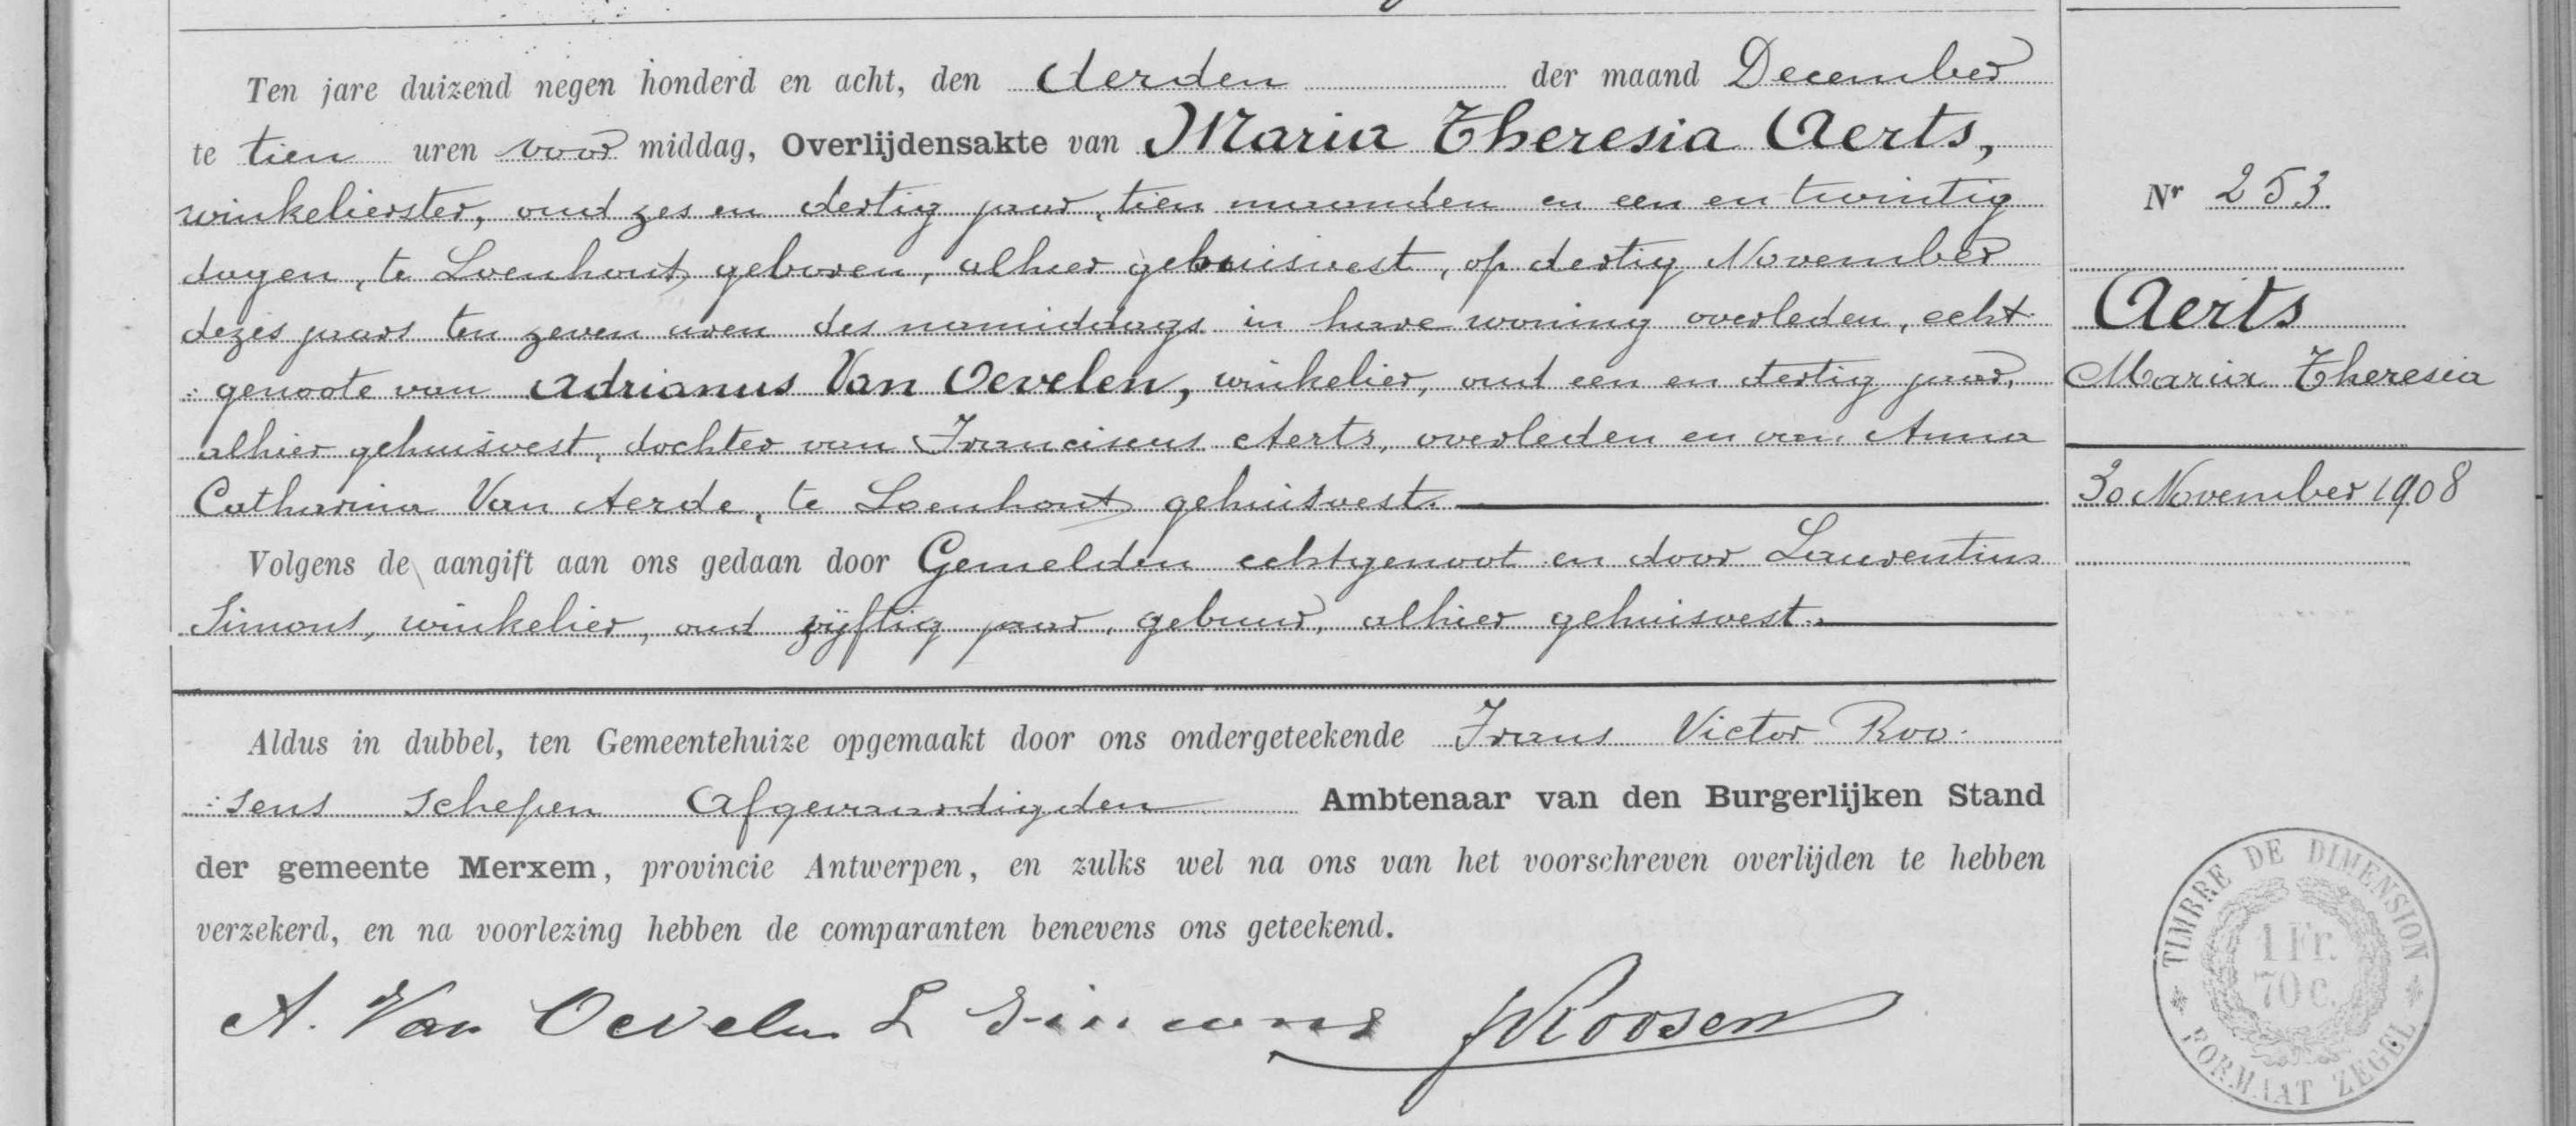 Ten jare duizend negen honderd en acht, den derden der maand December
te tien uren voor middag, Overlijdensakte van Maria Theresia Aerts,
winkelierster, oud zes en dertig jaar, tien maanden en een en twintig
dagen, te Loenhout geboren, alhier gehuisvest, op dertig November
dezes jaars ten zeven uren des namiddags in hare woning overleden, echt-
:genoote van Adrianus Van Oevelen, winkelier, oud een en dertig jaar,
alhier gehuisvest, dochter van Franciscus Aerts, overleden en van Anna
Catharina Van Aerde, te Loenhout gehuisvest.
Volgens de aangift aan ons gedaan door Gemelden echtgenoot en door Laurentius
Simons, winkelier, oud vijftig jaar, gebuur, alhier gehuisvest.
Aldus in dubbel, ten Gemeentehuize opgemaakt door ons ondergeteekende Frans Victor Roo-
:sens schepen Afgevaardigden Ambtenaar van den Burgerlijken Stand
der gemeente Merxem, provincie Antwerpen, en zulks wel na ons van het voorschreven overlijden te hebben
verzekerd, en na voorlezing hebben de comparanten benevens ons geteekend.
A. Van Oevelen L Simons FVRoosen
Nr 253
Aerts
Maria Theresia
30 November 1908
TIMBRE DE DIMENSION
1 Fr.
70 c.
FORMAAT ZEGEL